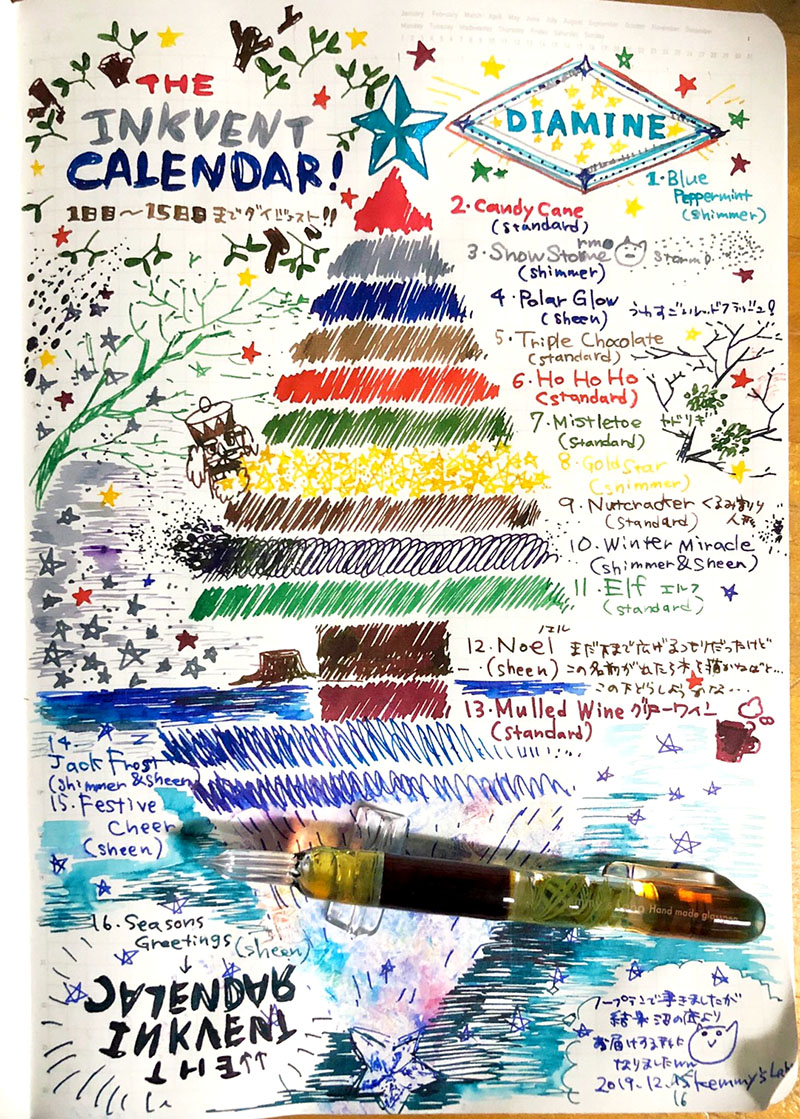 January February March April May June July August September October November December
Monday Tuesday Wednesday Thursday Friday Saturday Sunday
1 2 3 4 5 6 7 8 9 10 11 12 13 14 15 16 17 18 19 20 21 22 23 24 25 26 27 28 29 30 31
THE
INKVENT
CALENDAR!
1日目〜15日目までダイジェスト!!
DIAMINE
1. Blue
Peppermint
(shimmer)
2. Candy Cane
(standard)
3. Snow Storme rm
Storm
(shimmer)
4. Polar Glow
(sheen)
うわすごいレッドフラッシュ!
5. Triple Chocolate
(standard)
6. Ho Ho Ho
(standard)
7. Mistletoe ヤドリギ
(standard)
8. Gold Star
(shimmer)
9. Nutcracker くるみ割り
(standard) 人形
10. Winter Miracle
(shimmer&Sheen)
11. Elf エルフ
(standard)
ノエル
12. Noel まだ下まで広げるつもりだったけど
(sheen) この名前がでたら木を描かねばと...
この下どうしような...
13. Mulled Wine グリューワイン
(standard)
14.
Jack Frost
(shimmer&sheen)
15. Festive
Cheer
(sheen)
16. Seasons
Greetings (sheen)
↓
CALENDAR
INKVENT
THE
Hand made glasspen
ノープランで書きましたが
結果沼の底より
お届けする事に
なりましたww
2019.12.15 kemmy's Labo
16